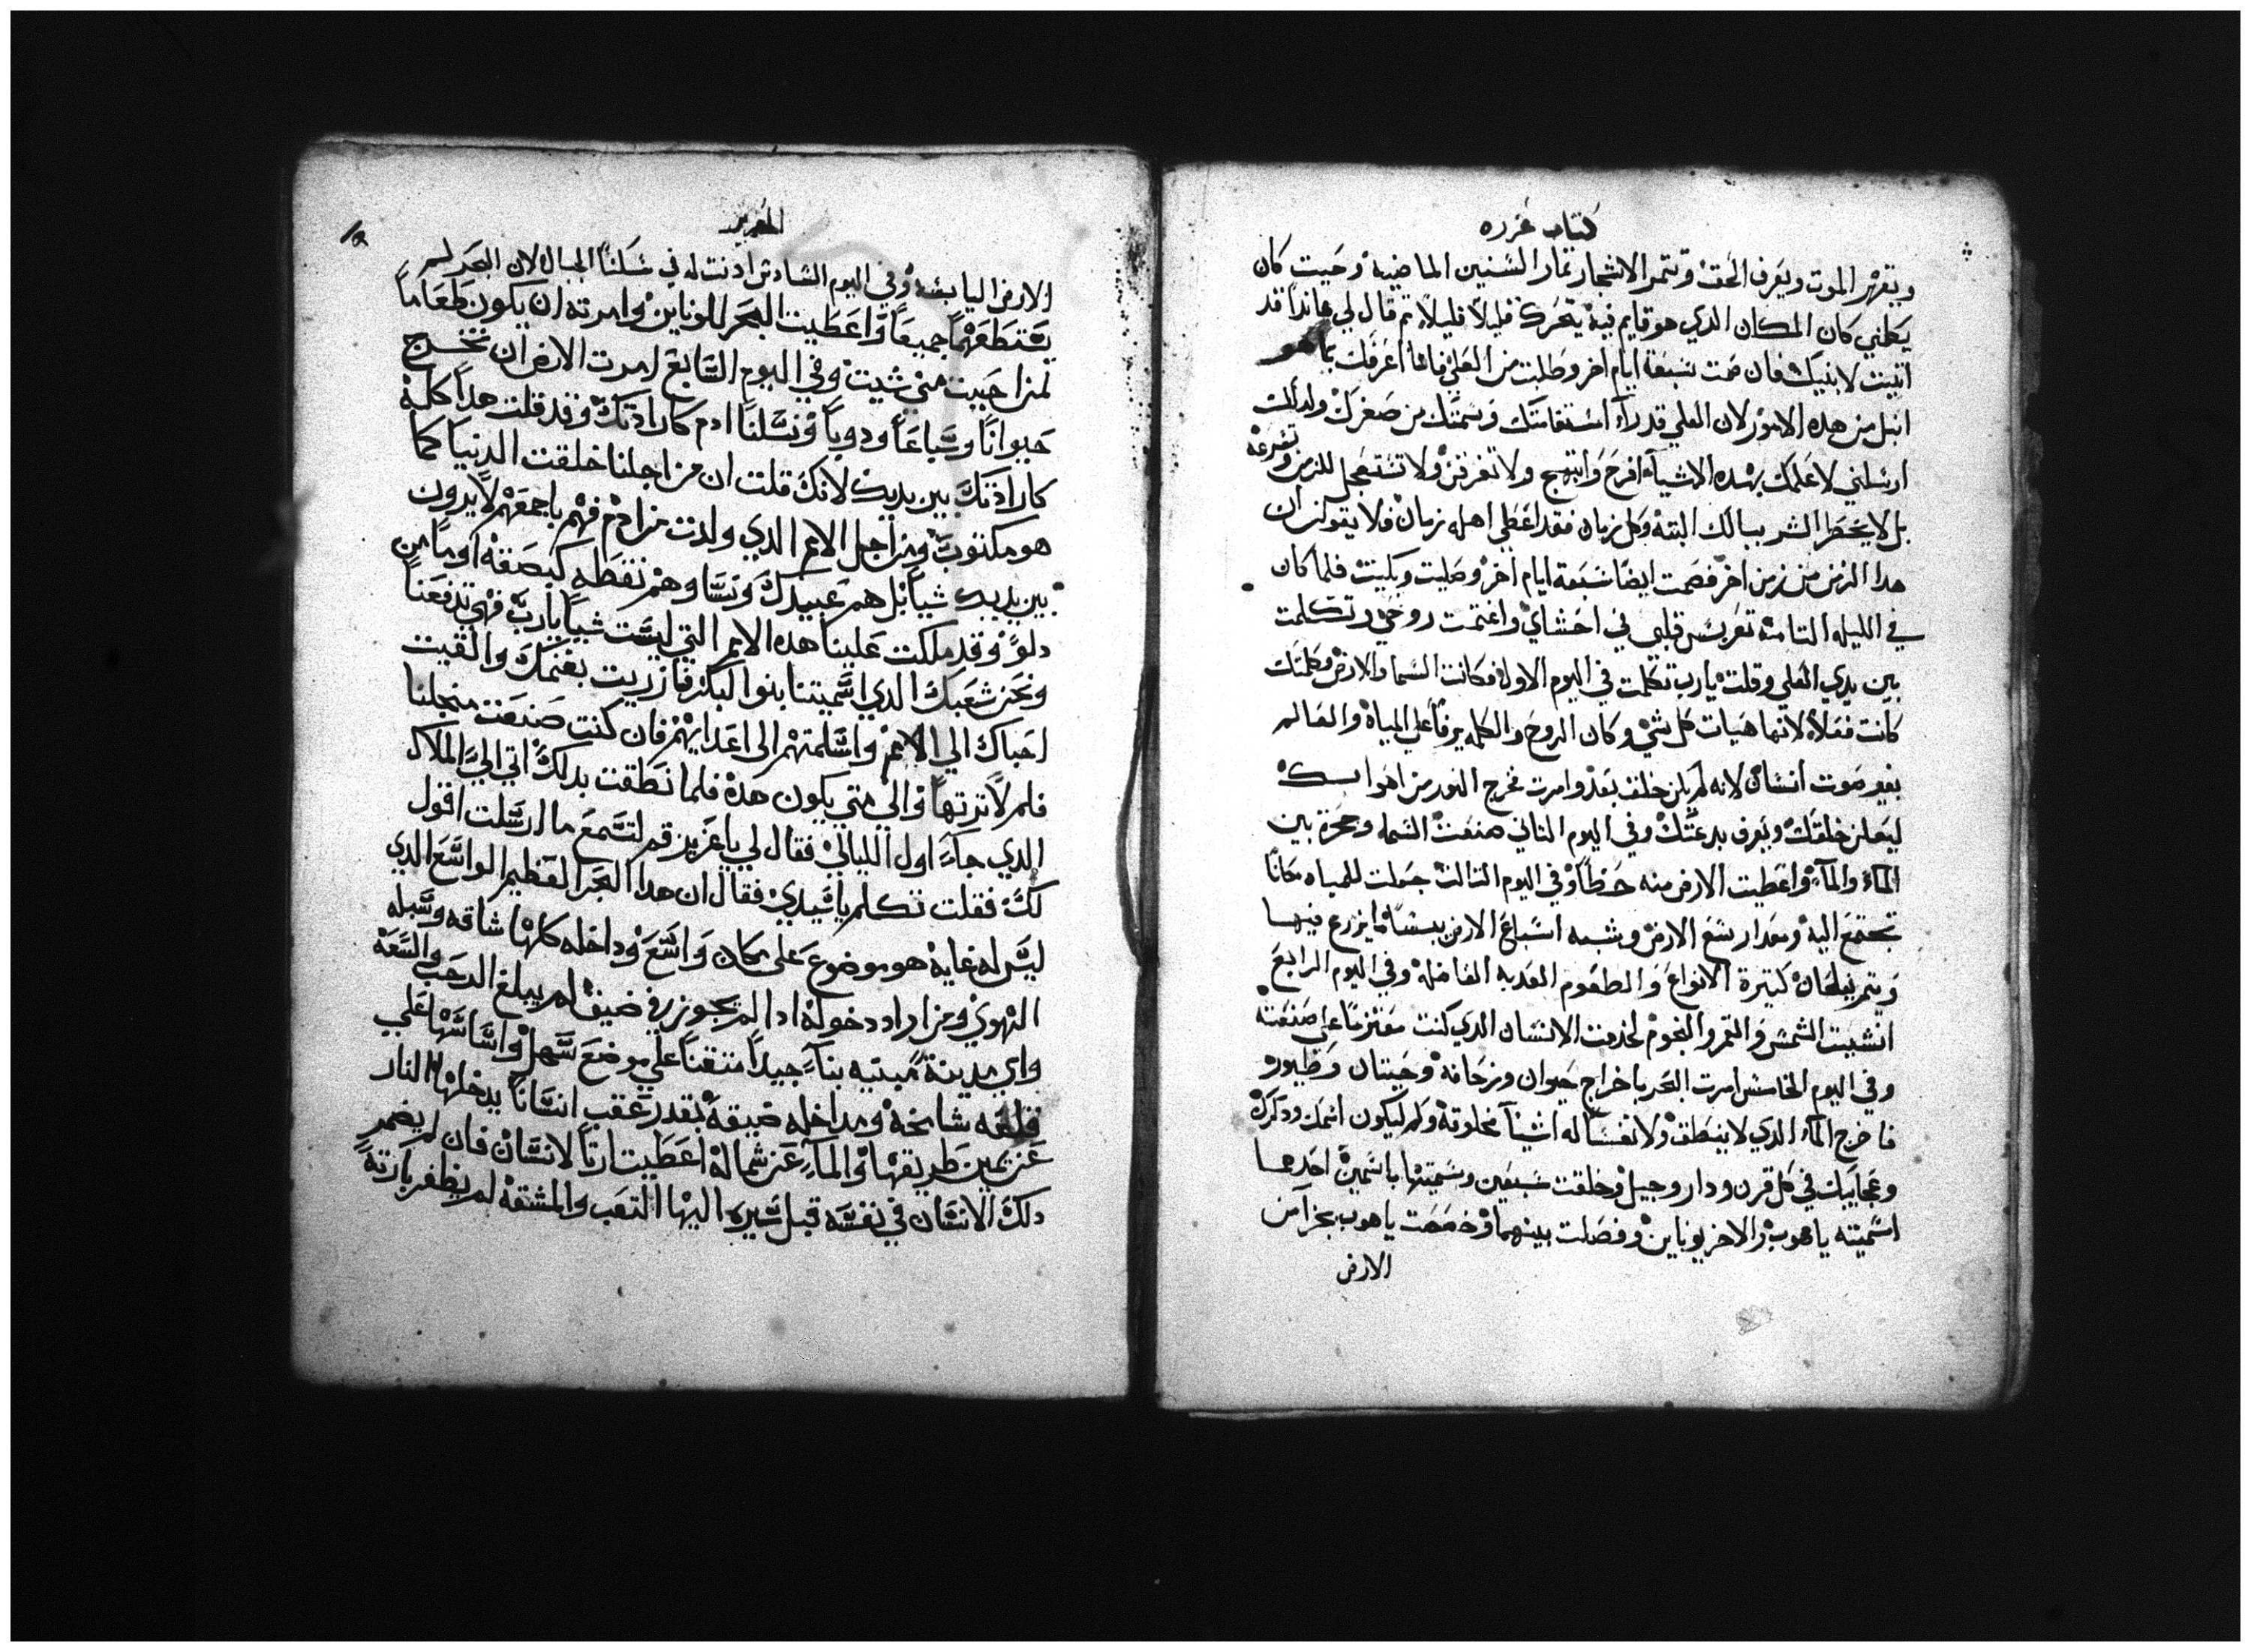 كتاب عزره
ويقهر الموت ويعرف الحق وتتمر الاشجار تمار السنين الماضيه وحيت كان
يكلمني كان المكان الدي هو قايم فيه يتحرك قليلاً قليلاً تم قال لي هاندا قد
اتيت لانبيك فان صمت سبعة ايام اخر وطلبت من العلي فانا اعرفك بما هو
انبل من هده الامور لان العلي قد رآ استقامتك وسمتك من صغرك ولدالك
ارسلني لاعلمك بهده الاشيآ افرح وابتهج ولا تفرقن ولا تستعجل للزمن وسرعه
بل لا يخطر الشر ببالك البته وكل زمان فقد اعطي اهله زمان فلا يقولن ان
هدا الزمن من زمن اخر فصمت ايضاً سبعة ايام اخر وصليت وبكيت فلما كان
في الليله التامنه تعربس قلبي في احشاي واغتمت روحي وتكلمت
بين يدي العلي وقلت يارب تكلمت في اليوم الاول فكانت السما والارض وكلمتك
كانت فعلاً لانها هيات كل شي وكان الروح والكله يرف اعلي المياه والعالم
بغير صوت انسان لانه لم يكن خلق بعد وامرت فخرج النور من اهوايك
ليعلن خلقتك ويعرف بدعتك وفي اليوم التاني صنعت السما وحجزة بين
المآء والمآء واعطيت الارض منه حظاً وفي اليوم التالت جعلت للمياه مكاناً
تجتمع اليه ومقدار شبع الارض وشبه اسباغ الارض بيبساً ما يزرع فيها
ويتمر نبلخان كتيرة الانواع والطعوم العدبه الفاضله وفي اليوم الرابع
انشيت الشمس والقمر والنجوم لخدمت الانسان الدي كنت معتزماً علي صنعته
وفي اليوم الخامس امرت البحر باخراج حيوان وزحافه وحيتان وطيور
فاخرج المآء الدي لا ينطق ولا نفساً له اشيآ مخلوقه ولم ليكون اسمك ودكرك
وعجايبك في كل قرن ودار وجيل وخلقت سبعين وسميتها باسمين احدها
اسميته ياهوب والاخر يوناين وفصلت بينهما وخصصت ياهوب بجزآ من
الارض
العزيز
الارض اليابسه وفي اليوم السادس ادنت له في سكنا الجبال لان البحر لم
يقتطعهما جميعاً واعطيت البحر للوناين وامرته ان يكون طعاماً
لمن احببت متي شيت وفي اليوم السابع امرت الارض ان تخرج
حيواناً وسباعاً ودوباً ونسلنا ادم كارادتك وقد قلت هدا كله
كارادتك بين يديك لانك قلت ان من اجلنا خلقت الدنيا كما
هو مكتوب ومن اجل الامم الدي ولدت من ادم فهم باجمعهم لا يرون
بين يديك شيا بل هم عبيدك ونسا وهم نقطه كبصقه او ما من
دلو وقد ملكت علينا هده الامم التي ليست شيا يارب فهي تدفعنا
ونحن شعبك الدي اسميتنا بنوا البكر فازريت بغنمك والقيت
احباك الي الامم واسلمتهم الي اعدايهم فان كنت صنعت من اجلنا
فلم لا ترتها والي متي يكون هده فلما نطقت بدلك اتي الي الملاك
الدي جآء اول الليالي فقال لي ياعزيز قم لتسمع ما ارسلت اقول
لك فقلت تكلم ياسيدي فقال ان هدا البحر العظيم الواسع الدي
ليس له غايه هو موضوع علي مكان واسع وداخله كلها شاقه وسبله
التهوي ومن اراد دخوله ادا لم يجوز في ضيق لم يبلغ الرحب والسعه
واي مدينة مبنيه بنآء جيداً متقناً علي موضع سهل واساسها علي
قلعه شامخة ومداخله ضيقه بقدر عقب انساناً يدخلها النار
عن يمين طريقها والمآء عن شماله اعطيت ارتاً لانسان فان لم يضمر
دلك الانسان في نفسه قبل سيره اليها التعب والمشقه لم يظفر بارته